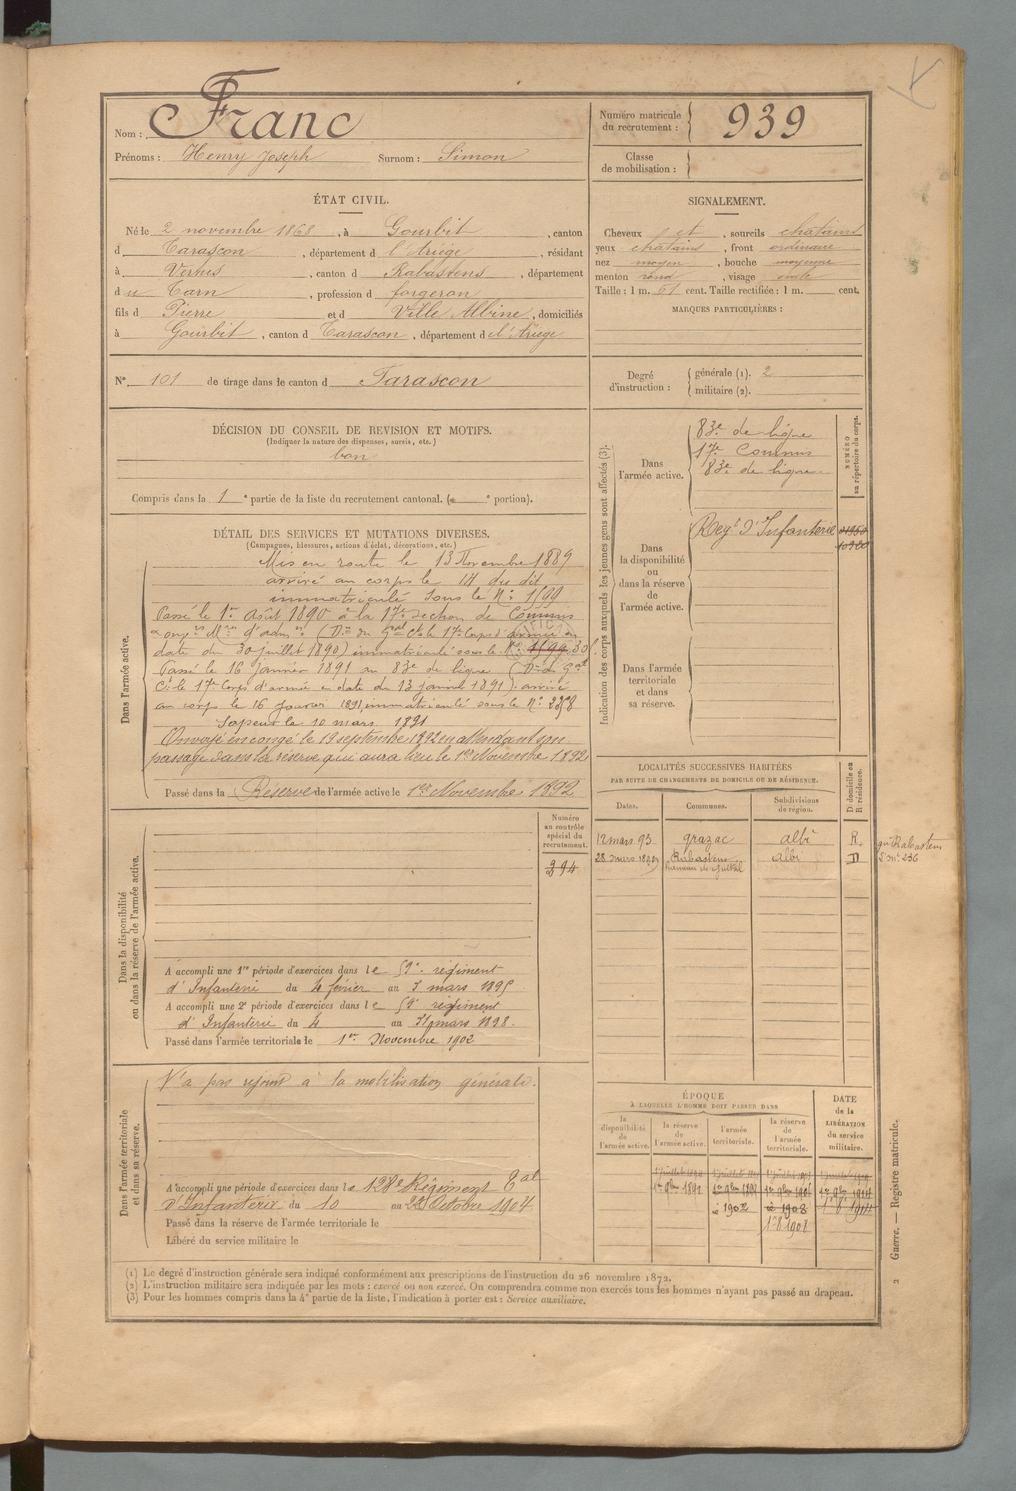 Nom : Franc
Prénoms : Henry Joseph Surnom : Simon
Numéro matricule du recrutement : 939
Classe de mobilisation :
ÉTAT CIVIL.
Né le 2 novembre 1868, à Gourbit, canton
d Tarascon, département d l'Ariège, résidant
à Verhes, canton d Rabastens, département
du Tarn, profession d forgeron
fils d Pierre et d Ville Albine, domiciliés
à Gourbit, canton d Tarascon, département d l'Ariège
SIGNALEMENT.
Cheveux et, sourcils chatains
yeux chatains, front ordinaire
nez moyen, bouche moyenne
menton rond, visage ovale
Taille : 1 m. 61 cent. Taille rectifiée : 1 m. cent.
MARQUES PARTICULIÈRES :
N° 101 de tirage dans le canton d Tarascon
Degré d'instruction : générale (1). 2
militaire (2).
DÉCISION DU CONSEIL DE REVISION ET MOTIFS.
(Indiquer la nature des dispenses, sursis, etc.)
bon
Compris dans la 1e partie de la liste du recrutement cantonal. ( e portion).
DÉTAIL DES SERVICES ET MUTATIONS DIVERSES.
(Campagnes, blessures, actions d'éclat, décorations, etc.)
Dans l'armée active.
Mis en route le 13 Novembre 1889
arrivé au corps le 14 du dit
immatriculé sous le N° 1599
Passé le 1er Août 1890 à la 17e section de Commis
et ouvrs Mres d'admon (Don du Gral Ct le 17e Corps d'armée en
date du 30 juillet 1890) immatriculé sous le N° 1599
Passé le 16 Janvier 1891 au 83e de ligne (Don du Gal
Ct le 17e Corps d'armée en date du 13 janvier 1891) arrivé
au corps le 16 janvier 1891, immatriculé sous le N°
Sapeur le 10 mars 1891
Envoyé en congé le 19 septembre 1892 en attendant son
passage dans la réserve qui aura lieu le 1er Novembre 1892
Passé dans la Réserve de l'armée active le 1er Novembre 1892
Indication des corps auxquels les jeunes gens sont affectés (3).
NUMÉRO au répertoire du corps.
Dans l'armée active.
83e de ligne
17e Commis
83e de ligne
Dans la disponibilité ou dans la réserve de l'armée active.
Regt d'Infanterie
Dans l'armée territoriale et dans sa réserve.
LOCALITÉS SUCCESSIVES HABITÉES
PAR SUITE DE CHANGEMENTS DE DOMICILE OU DE RÉSIDENCE.
Dates. Communes. Subdivisions de région. D domicile ou R résidence.
12 mars 93 Grazac Albi R.
28 mars Rabastens Albi D
Numéro au contrôle spécial du recrutement.
394
Dans la disponibilité ou dans la réserve de l'armée active.
A accompli une 1re période d'exercices dans le 59e régiment
d'Infanterie du 4 février au 3 mars 1895
A accompli une 2e période d'exercices dans le 59e régiment
d'Infanterie du 4 au 31 mars 1898.
Passé dans l'armée territoriale le 1er Novembre 1902
Dans l'armée territoriale et dans sa réserve.
N'a pas rejoint à la mobilisation générale.
A accompli une période d'exercices dans le 128e Régiment Tal
d'Infanterie du 10 au 22 Octobre 1904
Passé dans la réserve de l'armée territoriale le
Libéré du service militaire le
ÉPOQUE
À LAQUELLE L'HOMME DOIT PASSER DANS
la disponibilité de l'armée active.
la réserve de l'armée active.
l'armée territoriale.
la réserve de l'armée territoriale.
DATE de la LIBÉRATION du service militaire.
1er 9bre 1892
1902
1908
Guerre. — Registre matricule.
2
(1) Le degré d'instruction générale sera indiqué conformément aux prescriptions de l'instruction du 26 novembre 1872.
(2) L'instruction militaire sera indiquée par les mots : exercé ou non exercé. On comprendra comme non exercés tous les hommes n'ayant pas passé au drapeau.
(3) Pour les hommes compris dans la 4e partie de la liste, l'indication à porter est : Service auxiliaire.